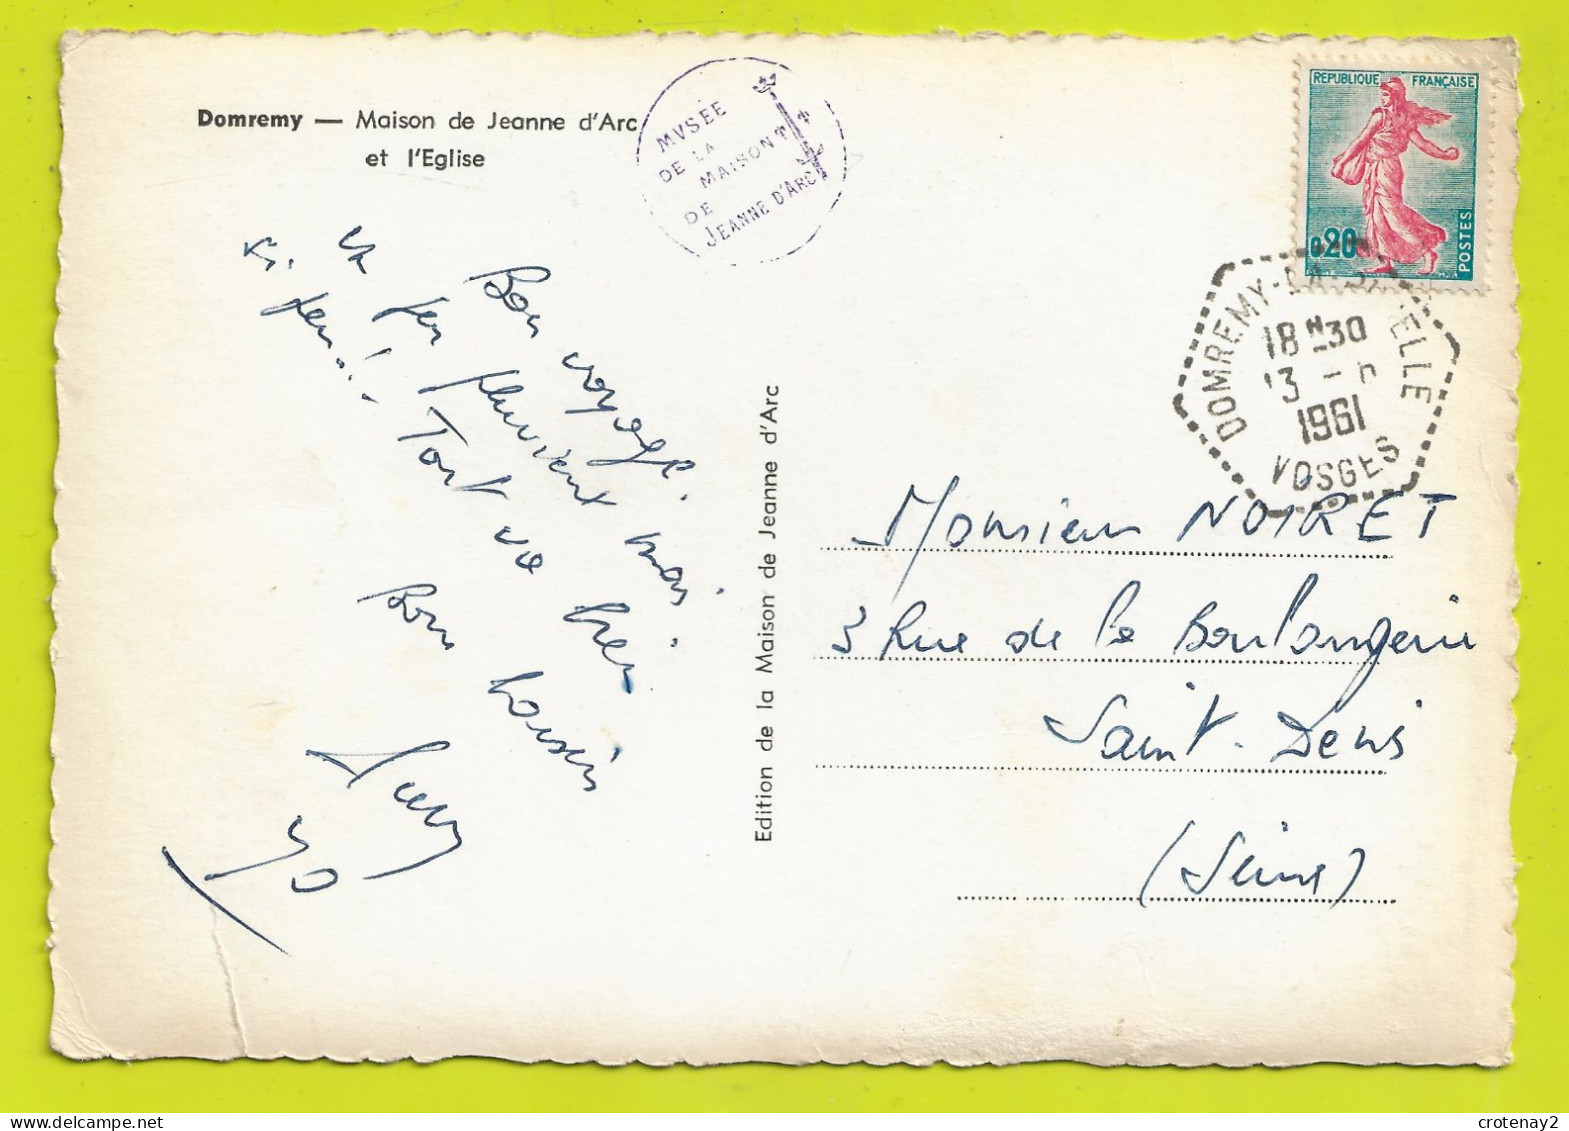 Domremy — Maison de Jeanne d'Arc
et l'Eglise
MVSÉE
DE LA
MAISON
DE
JEANNE D'ARC
REPUBLIQUE FRANÇAISE
0,20
POSTES
18 H 30
13 -
1961
VOSGES
Bon voyage.
un peu pluvieux mais
si peu..! Tout va bien
Bon
Edition de la Maison de Jeanne d'Arc
Monsieur NOIRET
3 Rue de la Boulangerie
Saint-Denis
(Seine)
crotenay2